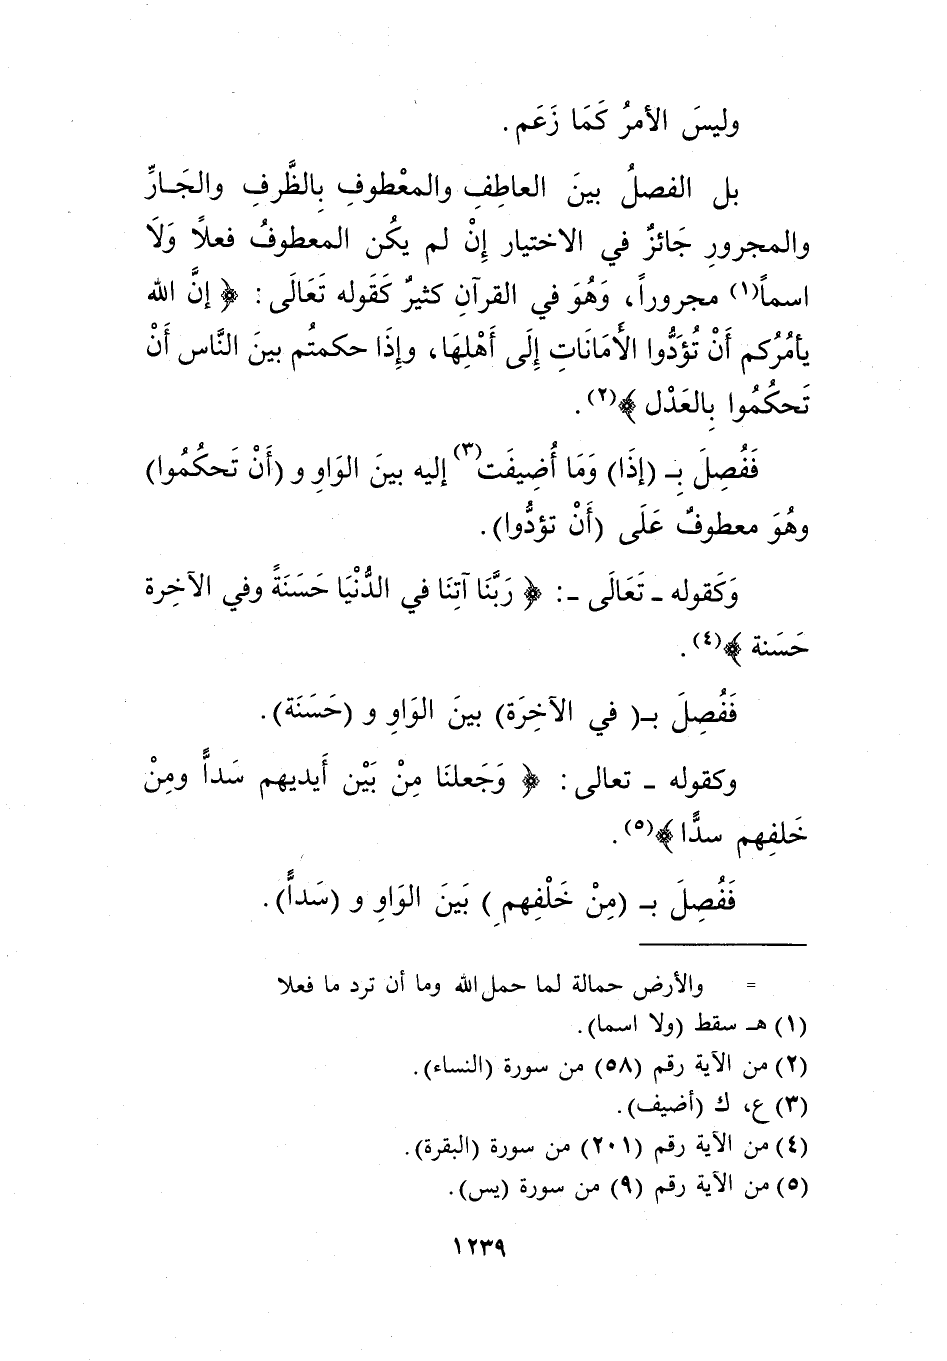 وليسَ الأمرُ كَمَا زَعَم .
بل الفصلُ بينَ العاطِفِ والمعْطوفِ بِالظَّرفِ والجَـارِّ
والمجرورِ جَائزٌ في الاختيار إِنْ لم يكُن المعطوفُ فعلًا وَلَا
اسماً(١) مجروراً، وَهُوَ في القرآنِ كثيرٌ كَقَوله تَعَالَى : ﴿ إنَّ الله
يأمُرُكم أَنْ تُؤَدُّوا الأَمَانَاتِ إِلَى أَهْلِهَا، وإِذَا حكمتُم بينَ النَّاس أَنْ
تَحكُمُوا بِالعَدْل ﴾(٢) .
فَفُصِلَ بِـ (إذَا) وَمَا أُضِيفَت(٣) إليه بينَ الوَاوِ و (أَنْ تَحكُمُوا)
وهُوَ معطوفٌ عَلَى (أَنْ تؤدُّوا).
وَكَقوله ـ تَعَالَى ـ: ﴿ رَبَّنَا آتِنَا في الدُّنْيَا حَسَنَةً وفي الآخِرة
حَسَنة ﴾(٤) .
فَفُصِلَ بـ( في الآخِرَة) بينَ الوَاوِ و (حَسَنَة).
وكقوله ـ تعالى : ﴿ وَجَعلنَا مِنْ بَيْن أَيديهم سَداًّ ومِنْ
خَلفِهم سدًّا ﴾(٥) .
فَفُصِلَ بـ (مِنْ خَلْفِهم ) بَينَ الوَاوِ و (سَداًّ).
= والأرض حمالة لما حمل الله وما أن ترد ما فعلا
(١) هـ سقط (ولا اسما).
(٢) من الآية رقم (٥٨) من سورة (النساء).
(٣) ع، ك (أضيف).
(٤) من الآية رقم (٢٠١) من سورة (البقرة).
(٥) من الآية رقم (٩) من سورة (يس).
١٢٣٩